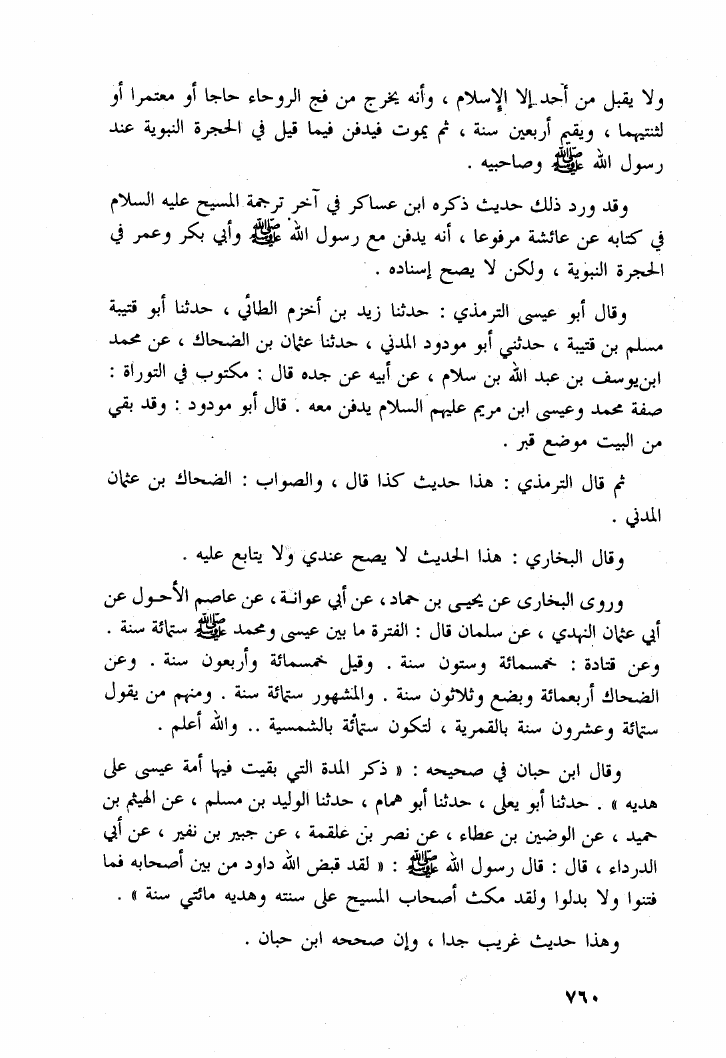 ولا يقبل من أحد إلا الإسلام ، وأنه يخرج من فج الروحاء حاجا أو معتمرا أو
لثنتيهما ، ويقيم أربعين سنة ، ثم يموت فيدفن فيما قيل في الحجرة النبوية عند
رسول الله ﷺ وصاحبيه .
وقد ورد ذلك حديث ذكره ابن عساكر في آخر ترجمة المسيح عليه السلام
في كتابه عن عائشة مرفوعا ، أنه يدفن مع رسول الله ﷺ وأبي بكر وعمر في
الحجرة النبوية ، ولكن لا يصح إسناده .
وقال أبو عيسى الترمذي : حدثنا زيد بن أخزم الطائي ، حدثنا أبو قتيبة
مسلم بن قتيبة ، حدثني أبو مودود المدني ، حدثنا عثمان بن الضحاك ، عن محمد
ابن يوسف بن عبد الله بن سلام ، عن أبيه عن جده قال : مكتوب في التوراة :
صفة محمد وعيسى ابن مريم عليهم السلام يدفن معه . قال أبو مودود : وقد بقي
من البيت موضع قبر .
ثم قال الترمذي : هذا حديث كذا قال ، والصواب : الضحاك بن عثمان
المدني .
وقال البخاري : هذا الحديث لا يصح عندي ولا يتابع عليه .
وروى البخارى عن يحيـى بن حماد، عن أبي عوانـة، عن عاصم الأحـول عن
أبي عثمان النهدي ، عن سلمان قال : الفترة ما بين عيسى ومحمد ﷺ ستمائة سنة .
وعن قتادة : خمسمائة وستون سنة . وقيل خمسمائة وأربعون سنة . وعن
الضحاك أربعمائة وبضع وثلاثون سنة . والمشهور ستمائة سنة . ومنهم من يقول
ستمائة وعشرون سنة بالقمرية ، لتكون ستمائة بالشمسية .. والله أعلم .
وقال ابن حبان في صحيحه : « ذكر المدة التي بقيت فيها أمة عيسى على
هديه » . حدثنا أبو يعلى ، حدثنا أبو همام ، حدثنا الوليد بن مسلم ، عن الهيثم بن
حميد ، عن الوضين بن عطاء ، عن نصر بن علقمة ، عن جبير بن نفير ، عن أبي
الدرداء ، قال : قال رسول الله ﷺ : « لقد قبض الله داود من بين أصحابه فما
فتنوا ولا بدلوا ولقد مكث أصحاب المسيح على سنته وهديه مائتي سنة » .
وهذا حديث غريب جدا ، وإن صححه ابن حبان .
٧٦٠